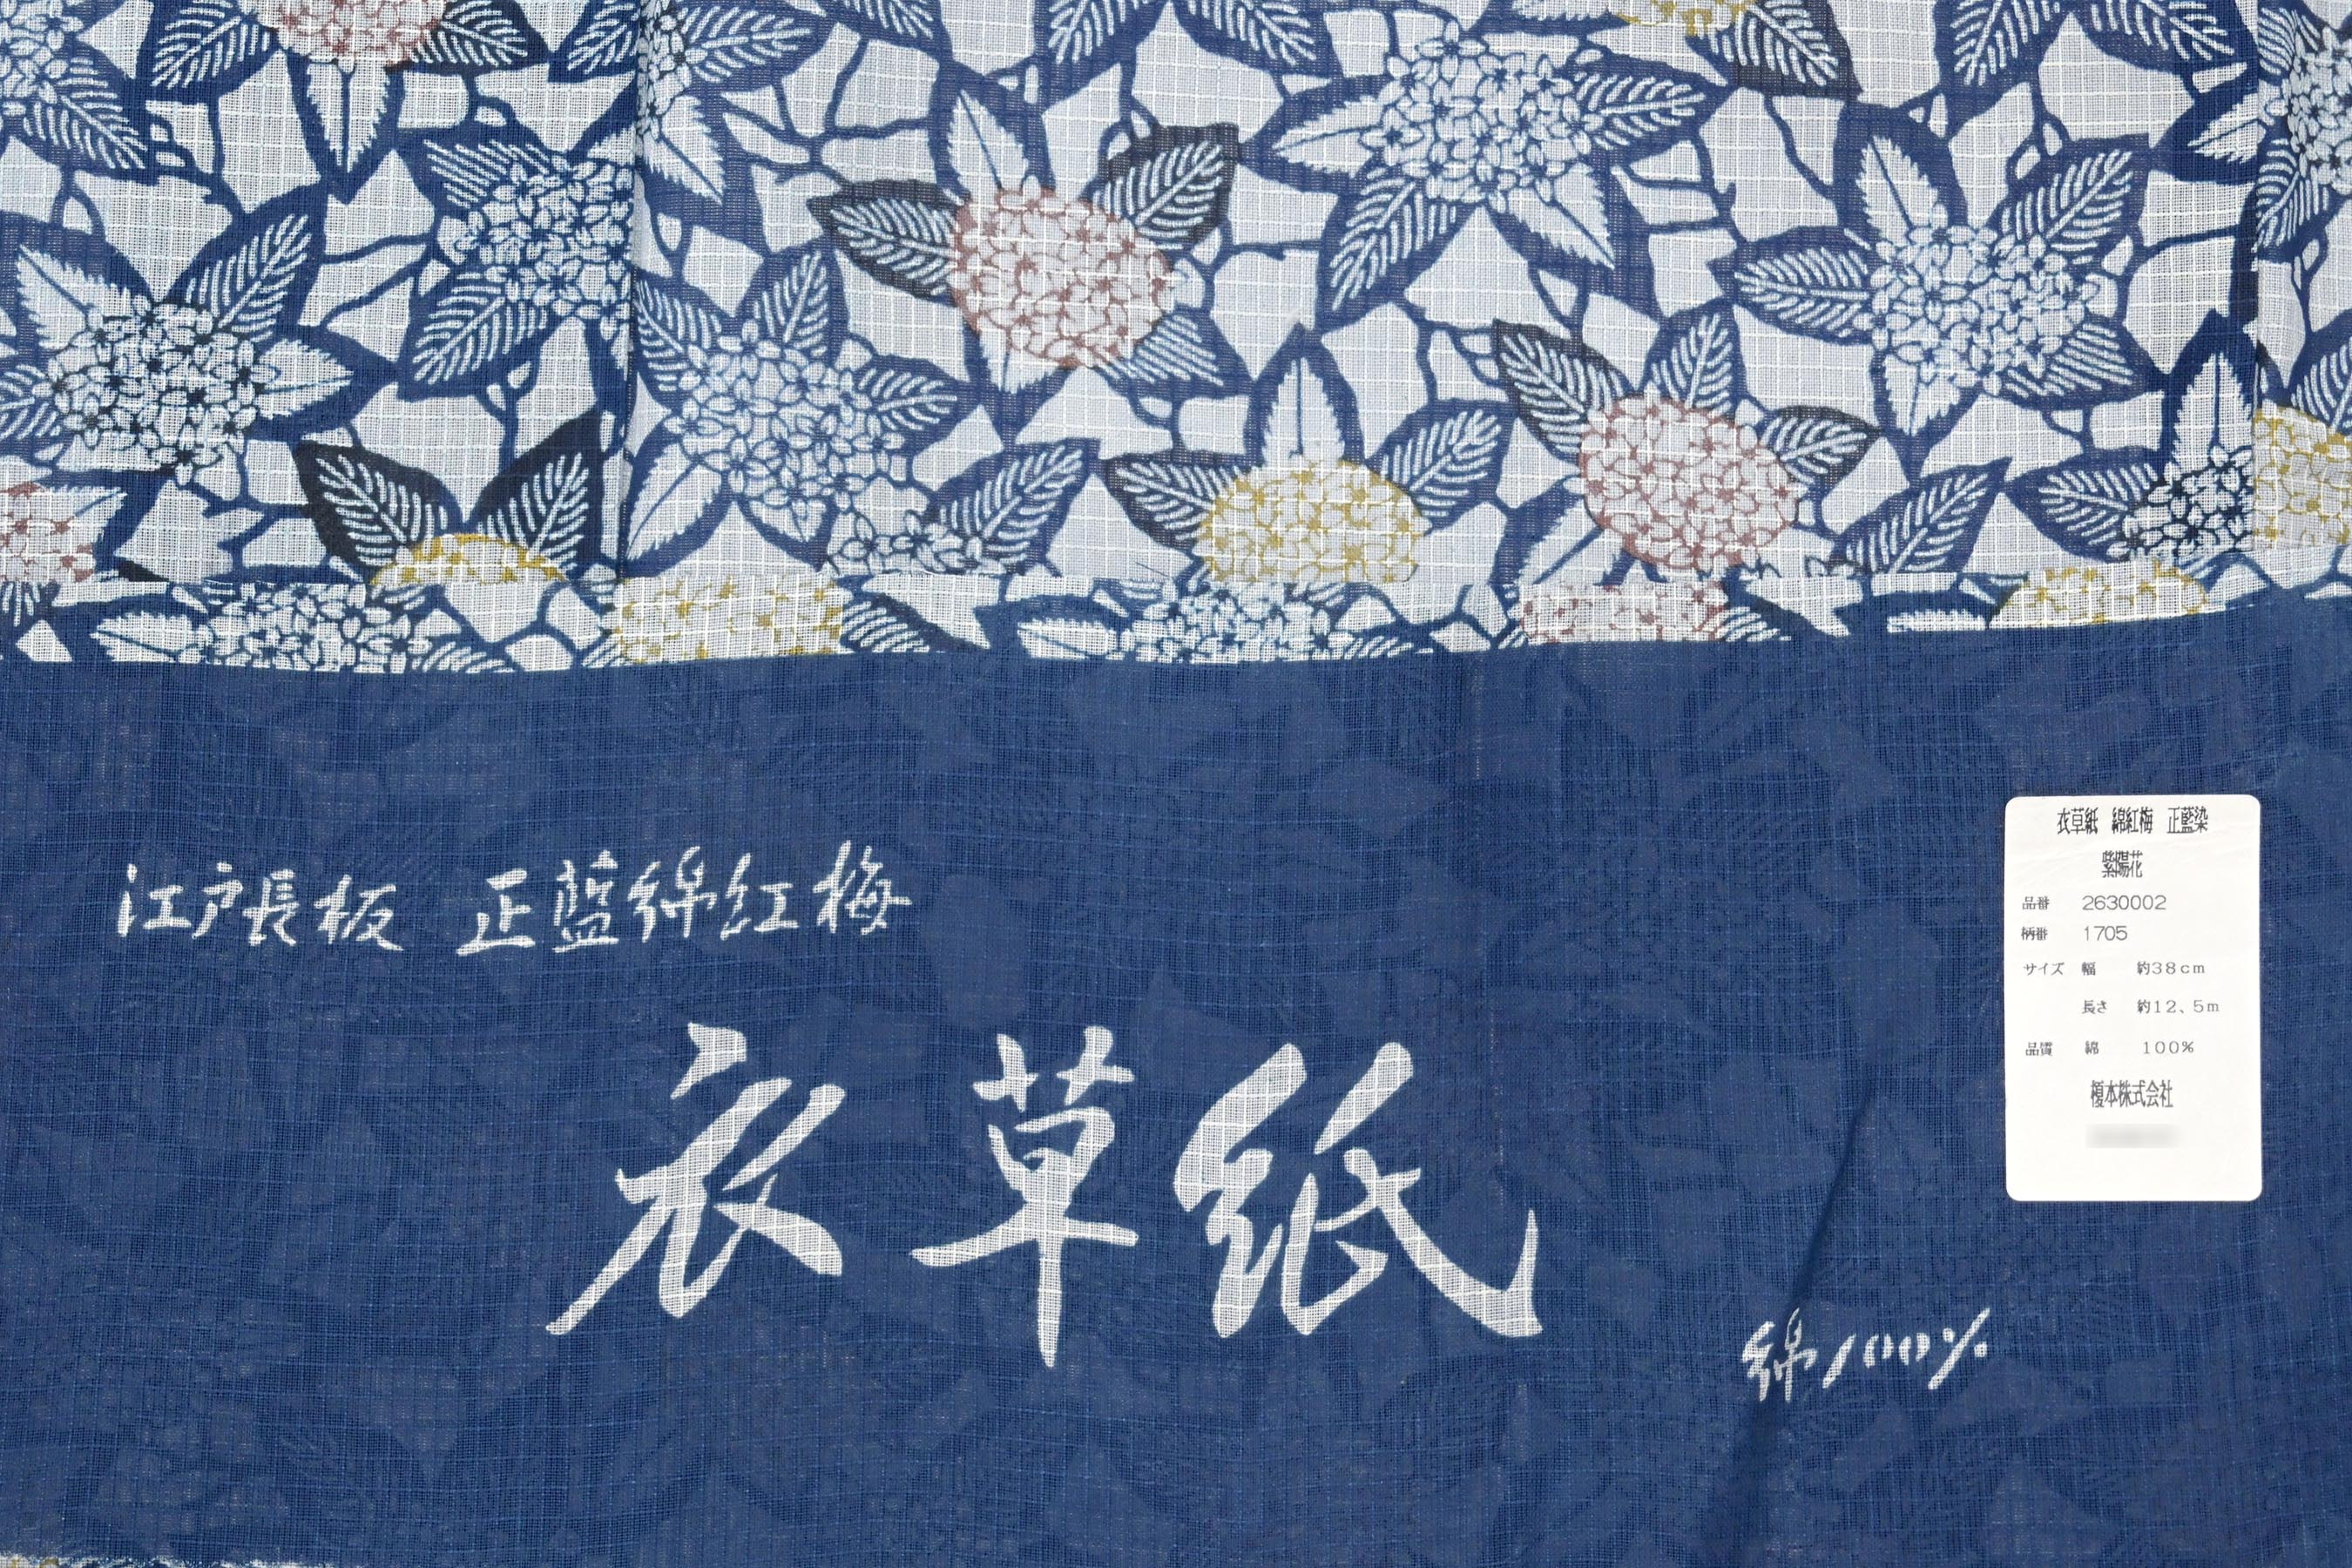 江戸長板 正藍綿紅梅
衣草紙
綿100%
衣草紙 綿紅梅 正藍染
紫陽花
品番 2630002
柄番 1705
サイズ 幅 約38cm
長さ 約12、5m
品質 綿 100%
榎本株式会社